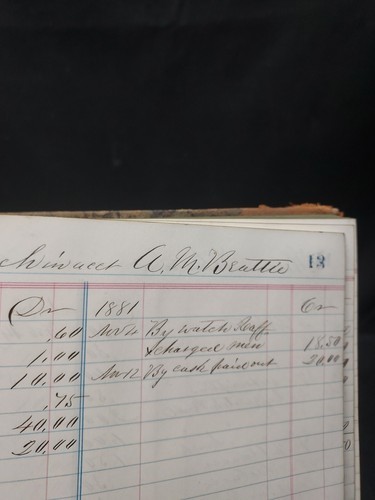 in acct A. M. Beattie 13
Dr 1881 Cr
.60 Nov 11 By watch
1.00 & charged men 18.50
10.00 Nov 12 By cash paid out 20.00
.75
40.00
20.00